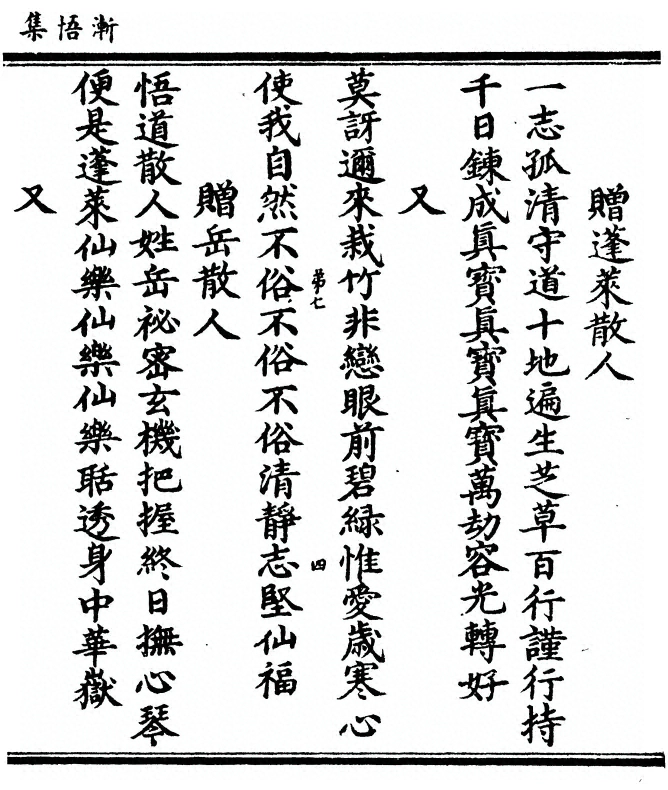 漸悟集
贈蓬萊散人
一志孤清守道十地遍生芝草百行謹行持
千日鍊成眞寳眞寳眞寳萬劫容光轉好
又
莫訝邇來栽竹非戀眼前碧緑惟愛歲寒心
第七
四
使我自然不俗不俗不俗清靜志堅仙福
贈岳散人
悟道散人姓岳祕密玄機把握終日撫心琴
便是蓬萊仙樂仙樂仙樂聒透身中華嶽
又